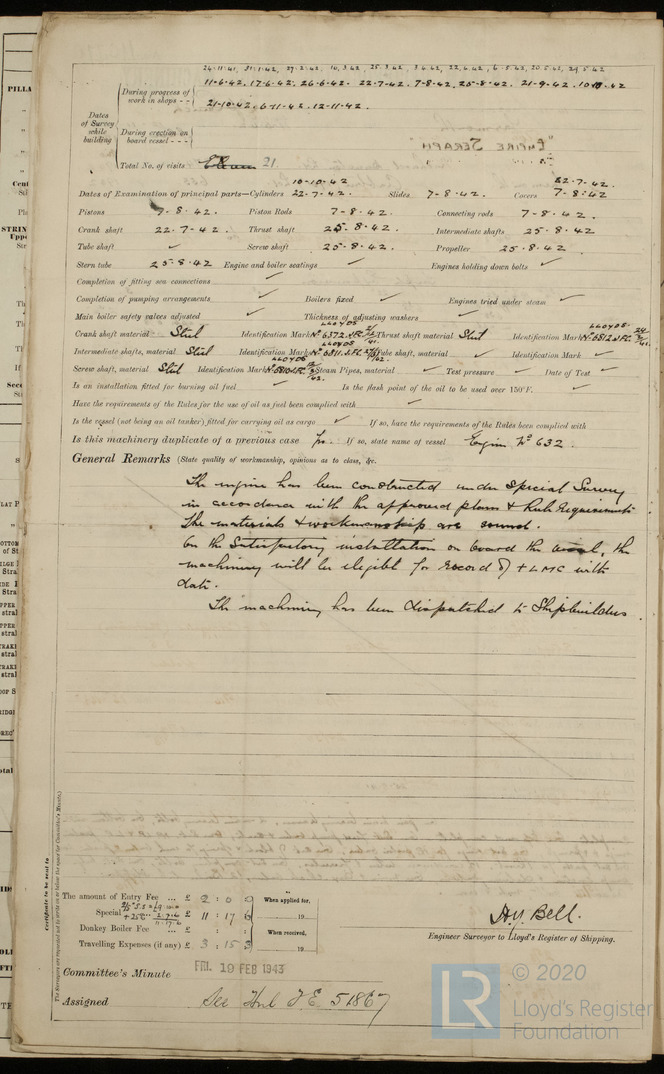 24·11·41, 31·1·42, 27·2·42, 10·3·42, 25·3·42, 3·6·42, 22·4·42, 6·5·42, 20·5·42, 29·5·42
11-6-42. 17-6-42. 26-6-42. 22-7-42. 7-8-42. 25-8-42. 21-9-42. 10-10-42
Dates of Survey while building
During progress of work in shops - -
21-10-42. 6-11-42. 12-11-42.
During erection on board vessel - - -
"EMPIRE SERAPH"
Total No. of visits 21
10-10-42 22-7-42.
Dates of Examination of principal parts—Cylinders 22-7-42. Slides 7-8-42. Covers 7-8-42
Pistons 7-8-42. Piston Rods 7-8-42. Connecting rods 7-8-42.
Crank shaft 22.7-42. Thrust shaft 25.8.42. Intermediate shafts 25.8.42
Tube shaft ✓ Screw shaft 25.8.42. Propeller 25.8.42
Stern tube 25-8-42 Engine and boiler seatings ✓ Engines holding down bolts ✓
Completion of fitting sea connections ✓
Completion of pumping arrangements ✓ Boilers fixed ✓ Engines tried under steam ✓
Main boiler safety valves adjusted ✓ Thickness of adjusting washers ✓
Crank shaft material Steel Identification Mark LLOYDS No 6372 Thrust shaft material Steel Identification Mark LLOYDS No 6812
Intermediate shafts, material Steel Identification Marks LLOYDS No 6811 Tube shaft, material ✓ Identification Mark ✓
Screw shaft, material Steel Identification Mark LLOYDS No 6810 Steam Pipes, material ✓ Test pressure ✓ Date of Test ✓
Is an installation fitted for burning oil fuel ✓ Is the flash point of the oil to be used over 150°F. ✓
Have the requirements of the Rules for the use of oil as fuel been complied with ✓
Is the vessel (not being an oil tanker) fitted for carrying oil as cargo ✓ If so, have the requirements of the Rules been complied with
Is this machinery duplicate of a previous case Yes. If so, state name of vessel Engine No 632.
General Remarks (State quality of workmanship, opinions as to class, &c.
The engine has been constructed under Special Survey
in accordance with the approved plans & Rule Requirements
The materials & workmanship are sound.
On the Satisfactory installation on board the vessel, the
machinery will be eligible for record of + LMC with
date.
The machinery has been dispatched to Shipbuilders
Certificate to be sent to
The amount of Entry Fee ... £ 2 : 0 : 0 When applied for,
Special £ 11 : 17 : 6 19
Donkey Boiler Fee ... £ : : When received,
Travelling Expenses (if any) £ 3 : 15 : 3 19
H.Y. Bell.
Engineer Surveyor to Lloyd's Register of Shipping.
Committee's Minute FRI. 19 FEB 1943
Assigned See Hul F.E. 51867
LR
© 2020
Lloyd's Register
Foundation